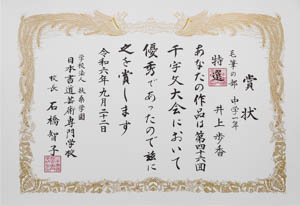 賞状
毛筆の部 中学二年
特選 井上歩香
あなたの作品は第四十六回
千字文大会において
優秀であったので茲に
之を賞します
令和六年九月二十二日
学校法人 扶桑学園
日本書道芸術専門学校
校長 石橋智子